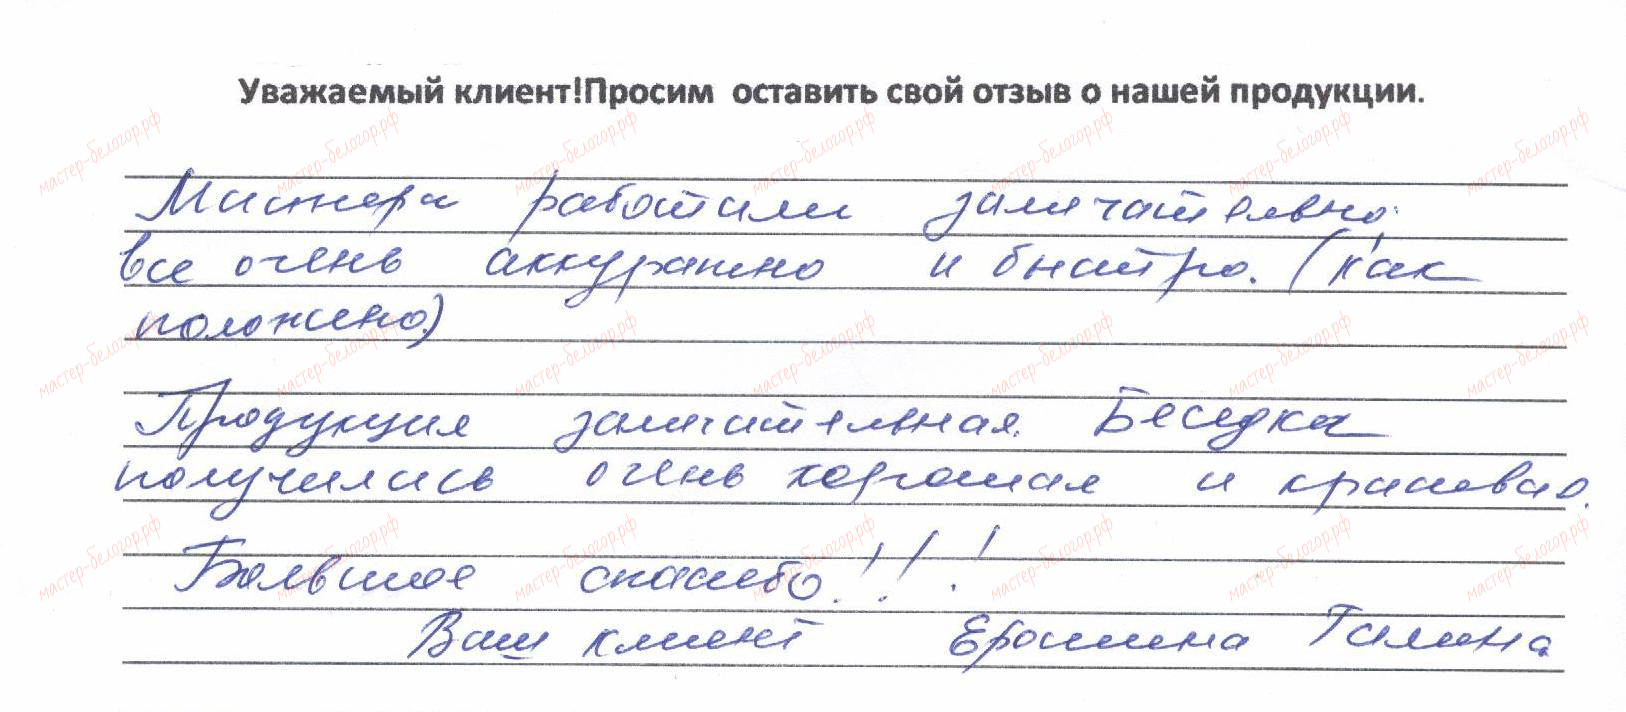 Уважаемый клиент!Просим оставить свой отзыв о нашей продукции.
Мастера работали замечательно
все очень аккуратно и быстро. (как
положено.)
Продукция замечательная. Беседка
получилась очень хорошая и красивая.
Большое спасибо!!!
Ваш клиент Галина
мастер-белогор.рф